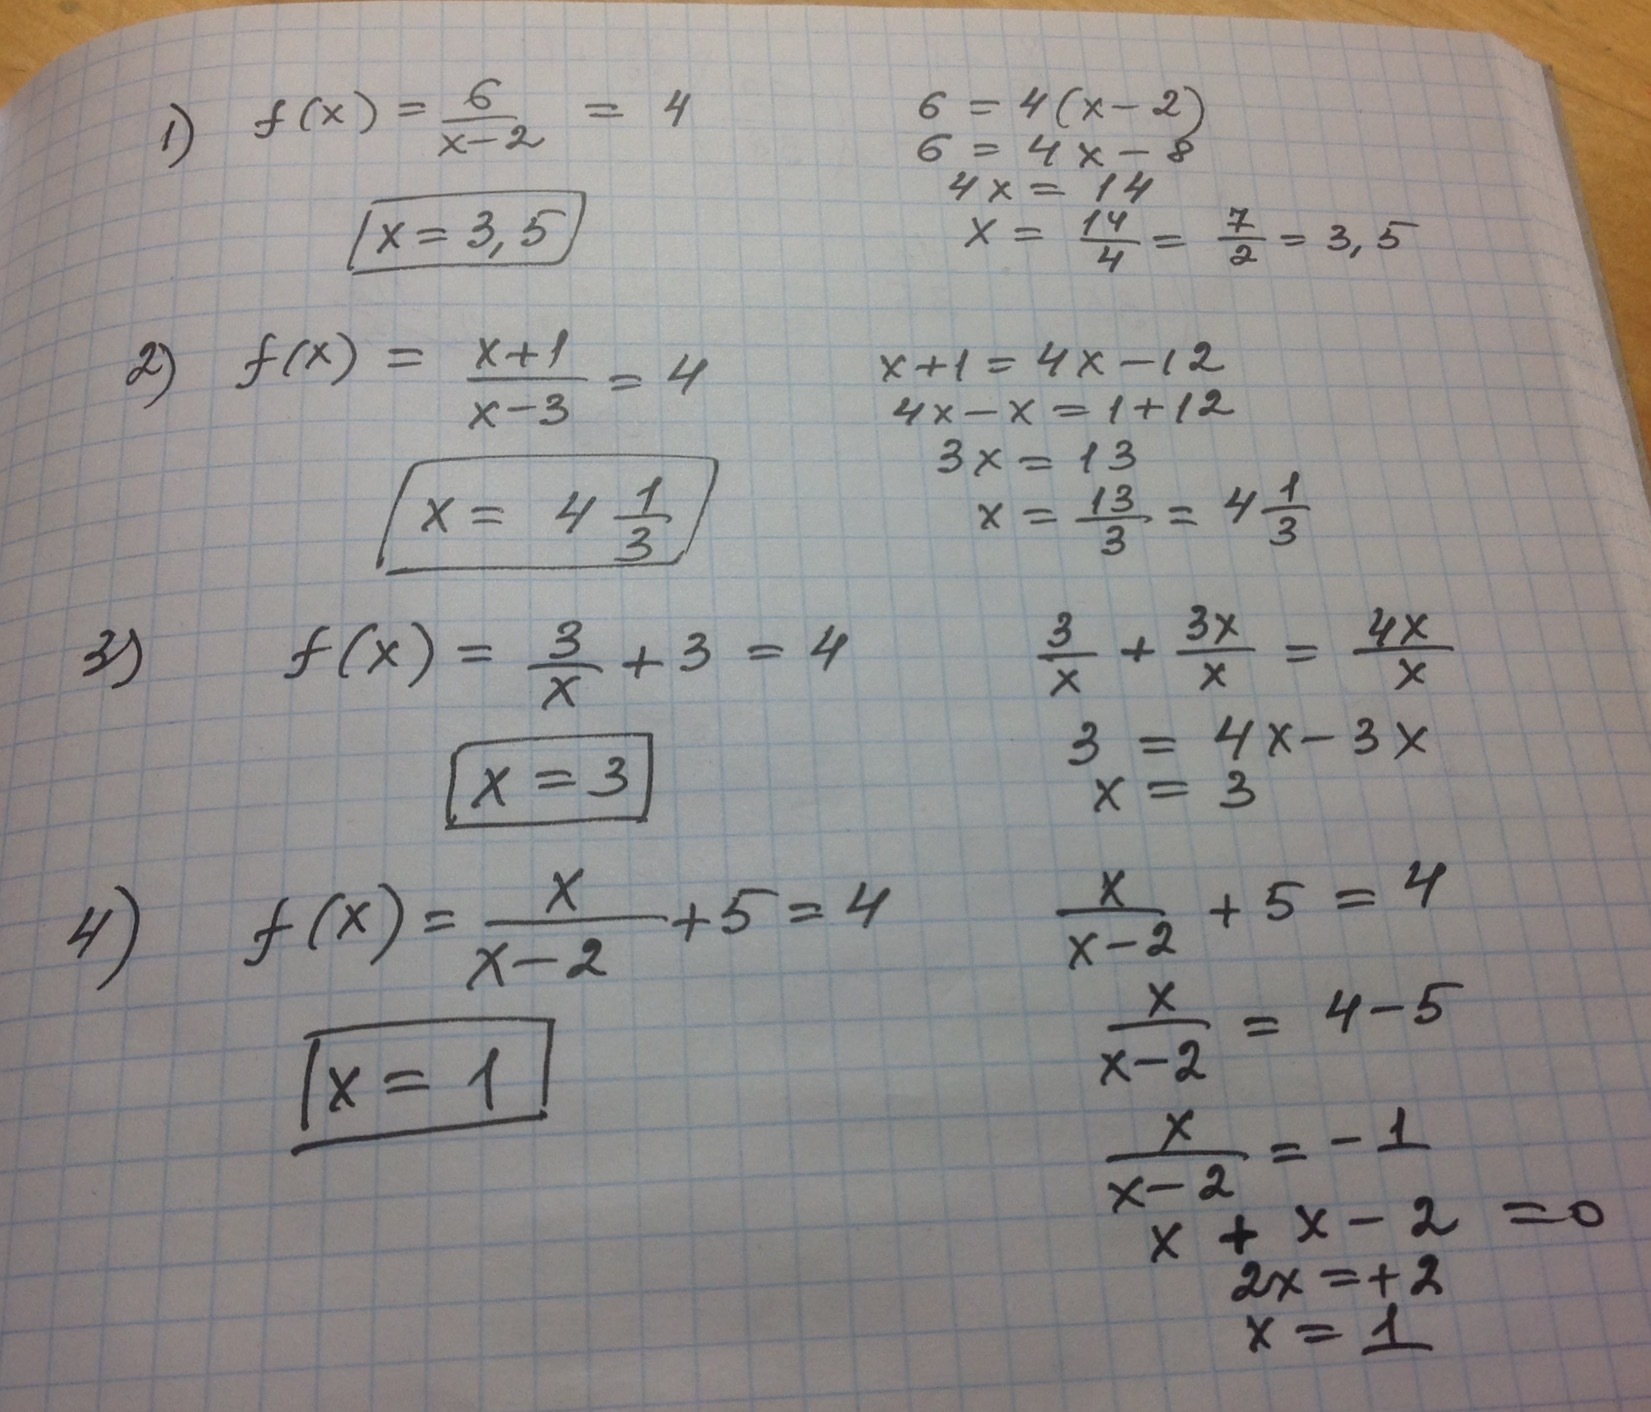 1) f(x) = 6/(x-2) = 4
6 = 4(x-2)
6 = 4x-8
4x = 14
x = 14/4 = 7/2 = 3,5
x = 3,5
2) f(x) = (x+1)/(x-3) = 4
x+1 = 4x-12
4x-x = 1+12
3x = 13
x = 13/3 = 4 1/3
x = 4 1/3
3) f(x) = 3/x + 3 = 4
3/x + 3x/x = 4x/x
3 = 4x-3x
x = 3
x = 3
4) f(x) = x/(x-2) + 5 = 4
x/(x-2) + 5 = 4
x/(x-2) = 4-5
x/(x-2) = -1
x + x-2 = 0
2x = +2
x = 1
x = 1